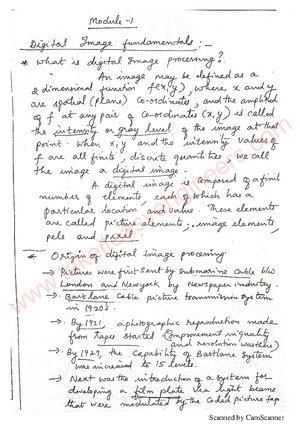 Module-1
Digital Image fundamentals:-
* What is digital Image processing?
An image may be defined as a
2 dimensional function f(x,y), where x and y
are spatial (plane) co-ordinates, and the amplitude
of f at any pair of co-ordinates (x,y) is called
the intensity or gray level of the image at that
point. When x,y and the intensity values of
f are all finite, discrete quantities, we call
the image a digital image.
A digital image is composed of a finite
number of elements, each of which has a
particular location and value. These elements
are called picture elements, image elements,
pels and pixel.
* Origin of digital image processing
→ Pictures were first sent by submarine cable b/w
London and Newyork by Newspaper industry.
→ Bartlane cable picture transmission system
in 1920's.
→ By 1921, a photographic reproduction made
from tape started (Improvement in quality
and resolution
→ By 1929, the capability of Bartlane system
was increased to 15 levels.
→ Next was the introduction of a system for
developing a film plate via light beams
that were modulated by the coded picture tap
Scanned by CamScanner